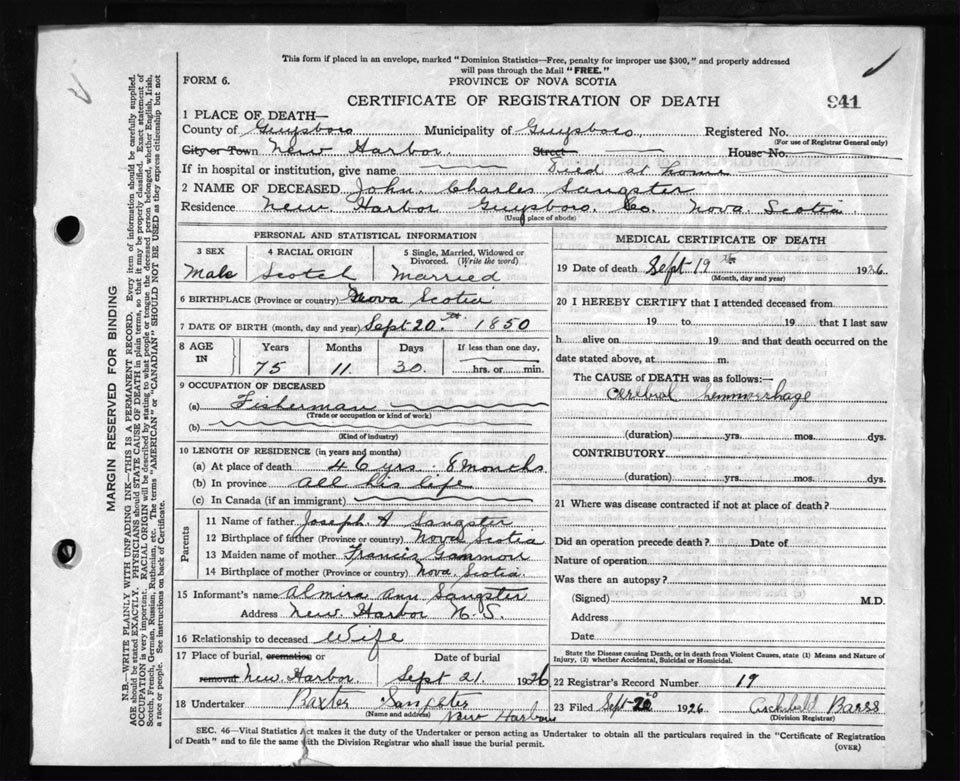 This form if placed in an envelope, marked "Dominion Statistics—Free, penalty for improper use $300," and properly addressed
will pass through the Mail "FREE."
FORM 6.
PROVINCE OF NOVA SCOTIA
CERTIFICATE OF REGISTRATION OF DEATH
941
1 PLACE OF DEATH—
County of Guysboro Municipality of Guysboro Registered No.
(For use of Registrar General only)
City or Town New Harbor. Street House No.
If in hospital or institution, give name Died at home
2 NAME OF DECEASED John Charles Sangster
Residence New Harbor Guysboro. Co. Nova Scotia
(Usual place of abode)
PERSONAL AND STATISTICAL INFORMATION
3 SEX 4 RACIAL ORIGIN 5 Single, Married, Widowed or
Divorced. (Write the word)
Male Scotch Married
6 BIRTHPLACE (Province or country) Nova Scotia
7 DATE OF BIRTH (month, day and year) Sept 20th 1850
8 AGE IN Years Months Days If less than one day,
75 11 30. hrs. or min.
9 OCCUPATION OF DECEASED
(a) Fisherman
(Trade or occupation or kind of work)
(b)
(Kind of industry)
10 LENGTH OF RESIDENCE (in years and months)
(a) At place of death 46 yrs. 8 Months
(b) In province all his life
(c) In Canada (if an immigrant)
Parents
11 Name of father Joseph A Sangster
12 Birthplace of father (Province or country) Nova Scotia
13 Maiden name of mother Francis Gammon
14 Birthplace of mother (Province or country) Nova. Scotia.
15 Informant's name Almira Ann Sangster
Address New. Harbor N.S.
16 Relationship to deceased Wife
17 Place of burial, cremation or Date of burial
removal New. Harbor. Sept 21. 1926
18 Undertaker Baxter Sangster
(Name and address) New Harbor
MEDICAL CERTIFICATE OF DEATH
19 Date of death Sept 19th 1926
(Month, day and year)
20 I HEREBY CERTIFY that I attended deceased from
19 to 19 that I last saw
h alive on 19 and that death occurred on the
date stated above, at m.
The CAUSE of DEATH was as follows:—
Cerebral hemmerhage
(duration) yrs. mos. dys.
CONTRIBUTORY
(duration) yrs. mos. dys.
21 Where was disease contracted if not at place of death?
Did an operation precede death? Date of
Nature of operation
Was there an autopsy?
(Signed) M.D.
Address
Date
State the Disease causing Death, or in death from Violent Causes, state (1) Means and Nature of
Injury, (2) whether Accidental, Suicidal or Homicidal.
22 Registrar's Record Number 19
23 Filed Sept 20 1926 Archibald Barss
(Division Registrar)
SEC. 46—Vital Statistics Act makes it the duty of the Undertaker or person acting as Undertaker to obtain all the particulars required in the "Certificate of Registration
of Death" and to file the same with the Division Registrar who shall issue the burial permit.
(OVER)
MARGIN RESERVED FOR BINDING
N.B.—WRITE PLAINLY WITH UNFADING INK—THIS IS A PERMANENT RECORD. Every item of information should be carefully supplied.
AGE should be stated EXACTLY. PHYSICIANS should STATE CAUSE OF DEATH in plain terms, so that it may be properly classified. Exact statement of
OCCUPATION is very important. RACIAL ORIGIN will be described by stating to what people or tongue the deceased person belonged, whether English, Irish,
Scotch, French, German, Russian, Ruthenian, etc. The terms "AMERICAN" or "CANADIAN" SHOULD NOT BE USED as they express citizenship but not
a race or people. See instructions on back of Certificate.